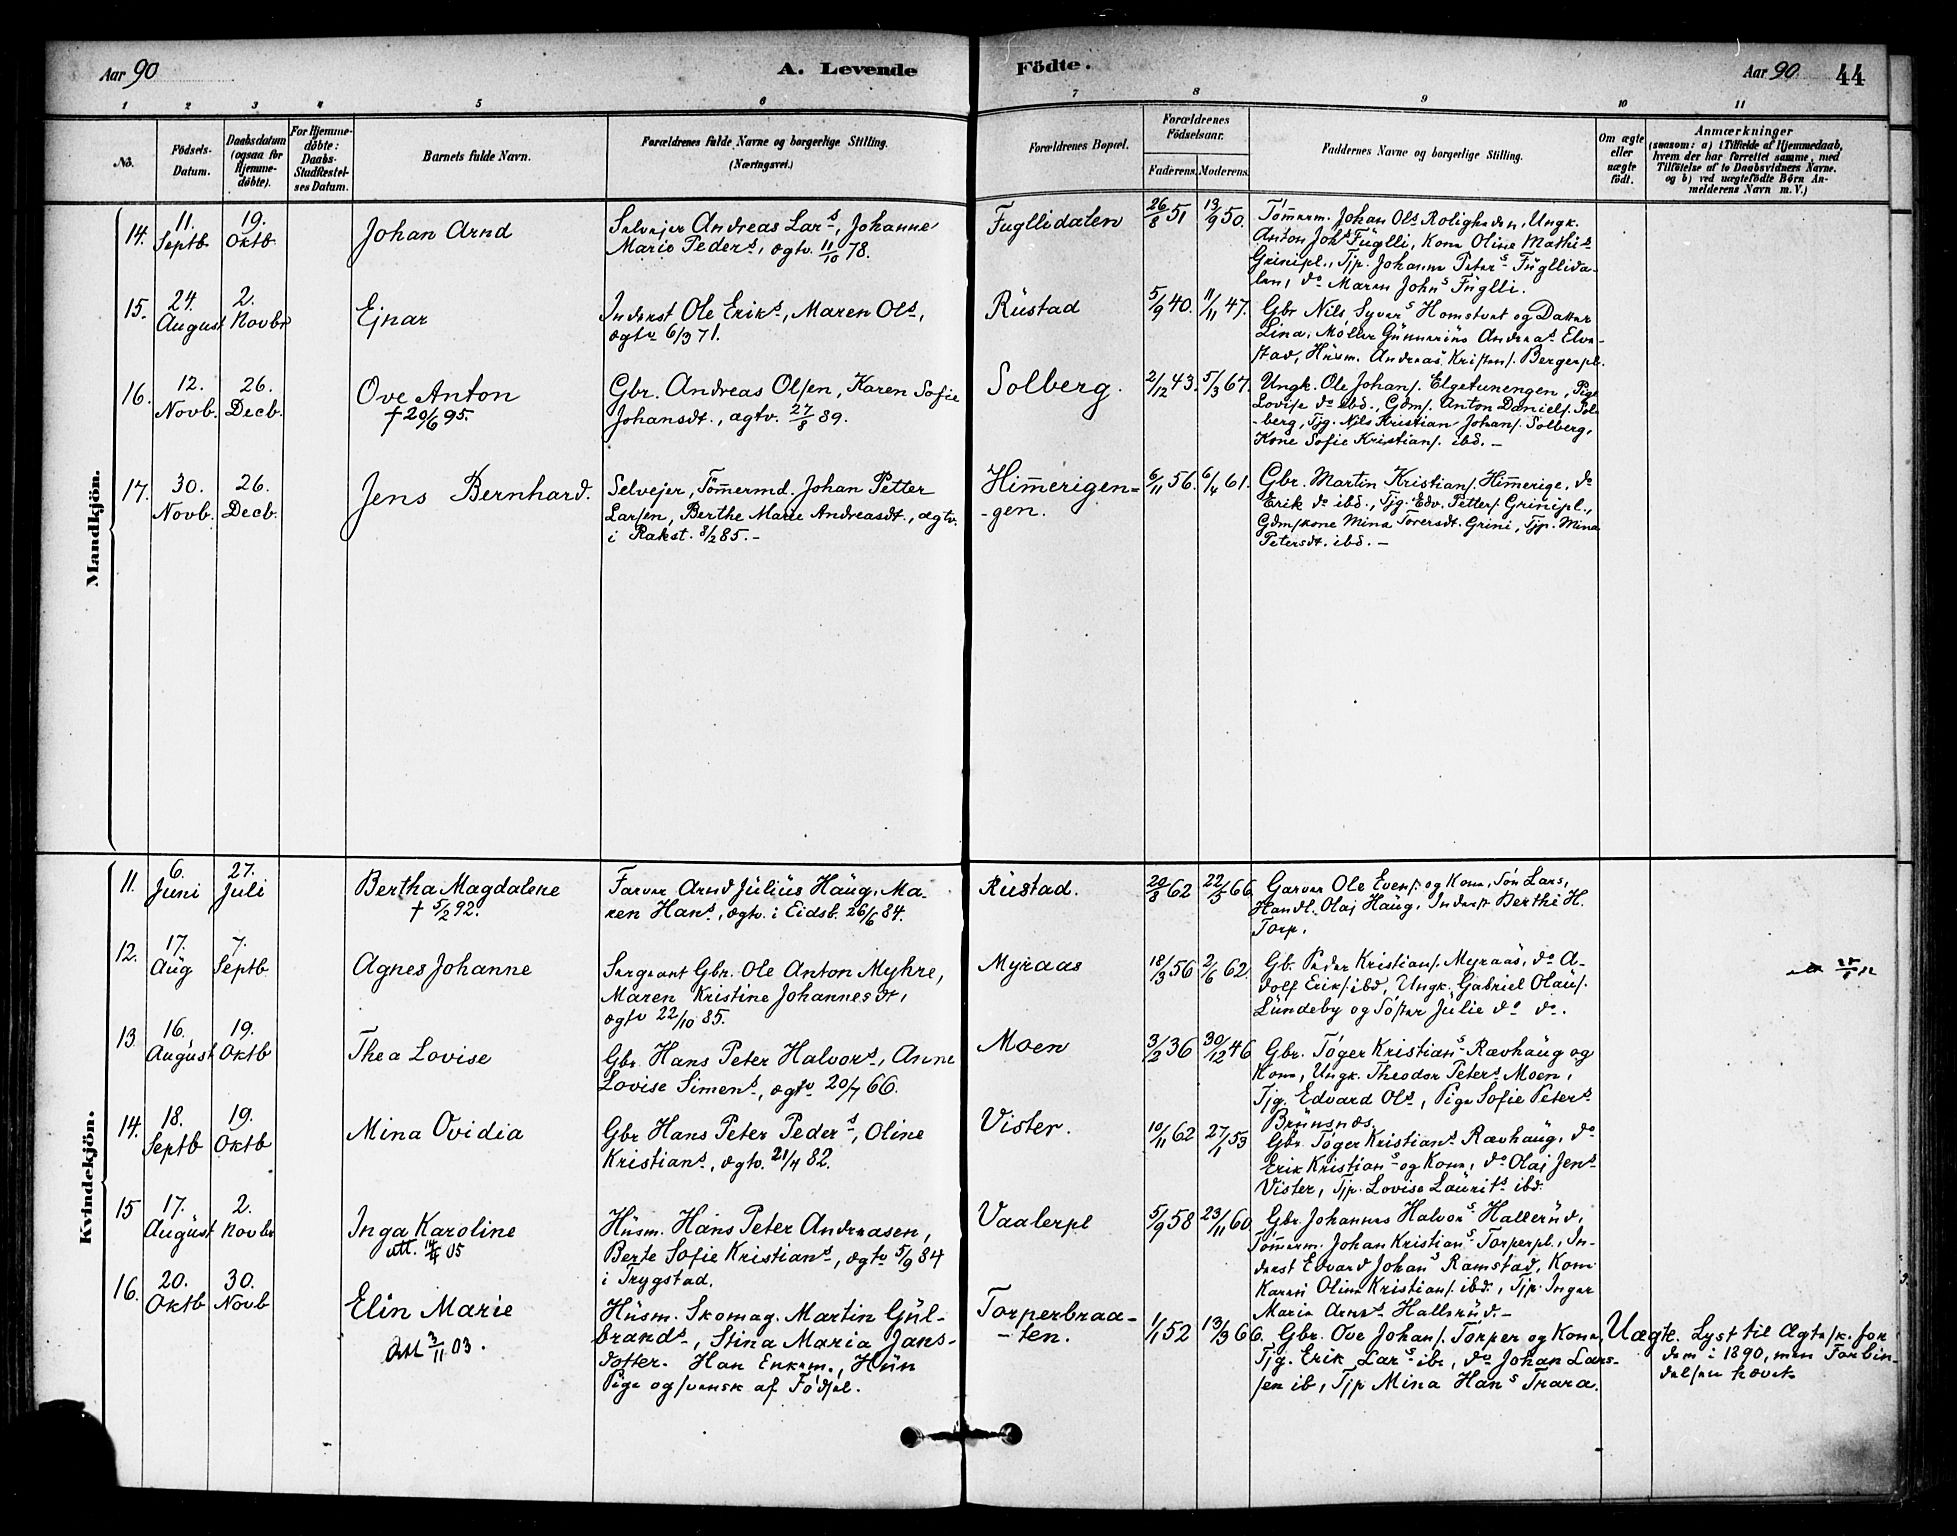 Aar 90
A. Levende
Födte.
Aar 90.
44
1 2 3 4 5 6 7 8 9 10 11
No.
Födsels-
Datum.
Daabsdatum
(ogsaa for
Hjemme-
döbte).
For Hjemme-
döbte:
Daabs-
Stadfæstel-
ses Datum.
Barnets fulde Navn.
Forældrenes fulde Navne og borgerlige Stilling.
(Næringsvei.)
Forældrenes Bopæl.
Forældrenes
Födselsaar.
Faderens. Moderens.
Faddernes Navne og borgerlige Stilling.
Om ægte
eller
uægte
födt.
Anmærkninger
(saasom: a) i Tilfælde af Hjemmedaab,
hvem der har forrettet samme, med
Tilföielse af to Daabsvidners Navne.
og b) ved uægtefödte Börn An-
melderens Navn m. V.)
Mandkjön.
14.
11.
Septb
19.
Oktb
Johan Arnd
Selvejer Andreas Lars, Johanne
Marie Peders, ægtv. 11/10 78.
Fugllidalen
26/8 51
13/9 50.
Tömmerm. Johan Ols Roligheden, Ungk.
Anton Johs Füglli, Kone Oline Mathis
Grinipl., Tjp. Johanne Peters Füglida-
len, do Maren Johns Füglli.
15.
24.
August
2.
Novbr
Ejnar
Inderst Ole Eriks, Maren Ols,
ægtv 6/3 71.
Rüstad
5/9 40.
11/11 47.
Gbr Nils Syvers Homstvet og Datter
Lina, Möller Günnerius Andreas Elve-
stad, Hüsm. Andreas Kristens. Bergerpl.
16.
12.
Novb.
26.
Decb.
Ove Anton
† 20/6 95.
Gbr. Andreas Olsen, Karen Sofie
Johansdt., ægtv. 27/8 89.
Solberg.
2/12 43.
5/3 67.
Ungk. Ole Johans. Elgetunengen, Pige
Lovise do ibd., Gdms. Anton Daniels. Sol-
-berg, Tjg. Nils Kristian Johans. Solberg,
Kone Sofie Kristians. ibd. -
17.
30.
Novb.
26.
Decb.
Jens Bernhard.
Selvejer, Tömmermd. Johan Petter
Larsen, Berthe Marie Andreasdt., ægtv.
i Rakst. 8/2 85. -
Himerigen-
-gen.
6/11 56.
6/4 61.
Gbr. Martin Kristians. Himerige, do
Erik do ibd., Tjg. Edv. Petters. Grinipl.,
Gdmskone Mina Torersdt. Grini, Tjp. Mina
Petersdt. ibd. -
Kvindekjön.
11.
6.
Juni
27.
Juli
Bertha Magdalene
† 5/2 92.
Farver Arnd Jülius Haüg, Ma-
ren Hans, ægtv. i Eidsb. 26/6 84.
Rüstad.
20/8 62
22/5 66
Garver Ole Evens. og Kone, Sön Lars,
Handl. Olaj Haüg, Inderst Berthe H.
Torp.
12.
17.
Aüg
7.
Septb
Agnes Johanne
Sergeant Gbr. Ole Anton Myhre,
Maren Kristine Johannesdt,
ægtv 22/10 85.
Myraas
18/3 56
2/6 62
Gb. Peder Kristians. Myraas, do A-
dolf Eriks. ibd, Ungk. Gabriel Olaüs.
Lündeby og Söster Jülie do do.
13
16.
August
19.
Oktb
Thea Lovise
Gbr. Hans Peter Halvors, Anne
Lovise Simens, ægtv 20/7 66.
Moen
3/2 36
30/12 46
Gbr. Töger Kristians Rævhaüg og
Kone, Ungk. Theodor Peters Moen,
Tjg. Edvard Ols, Pige Sofie Peters
Brünsnæs.
14.
18.
Septb
19.
Oktb
Mina Ovidia
Gbr Hans Peter Peders, Oline
Kristians, ægtv. 21/4 82.
Vister.
10/11 62
27/1 53
Gbr. Töger Kristians Rævhaüg, do
Erik Kristians og Kone, do Olaj Jens
Vister, Tjp. Lovise Laürits ibd.
15
17.
Aügüst
2.
Novbr
Inga Karoline
att. 14/4 05
Hüsm. Hans Peter Andreasen,
Berte Sofie Kristians, ægtv 5/9 84
i Trygstad.
Vaalerpl
5/9 58
23/11 60
Gbr. Johannes Halvors Hallerüd,
Tömmerm. Johan Kristians Torperpl., In-
derst Edvard Johans Ramstad, Kone
Karen Oline Kristians. ibd., Tjp. Inger
Marie Arnes Hallerüd. -
16.
20.
Oktb
30.
Novb
Elin Marie
Att 3/11 03.
Hüsm. Skomag. Martin Gül-
brands, Stina Maria Jans-
dotter. Han Enkem., Hün
Pige og svensk af Födsel.
Torperbraa-
-ten.
1/1 52
13/3 66.
Gbr. Ove Johans. Torper og Kone,
Tjg. Erik Lars ibd, do Johan Lars-
sen ib, Tjp Mina Hans Trara.
Uægte.
Lyst til Ægtesk. for
dem i 1890, men Forbin-
delsen hævet